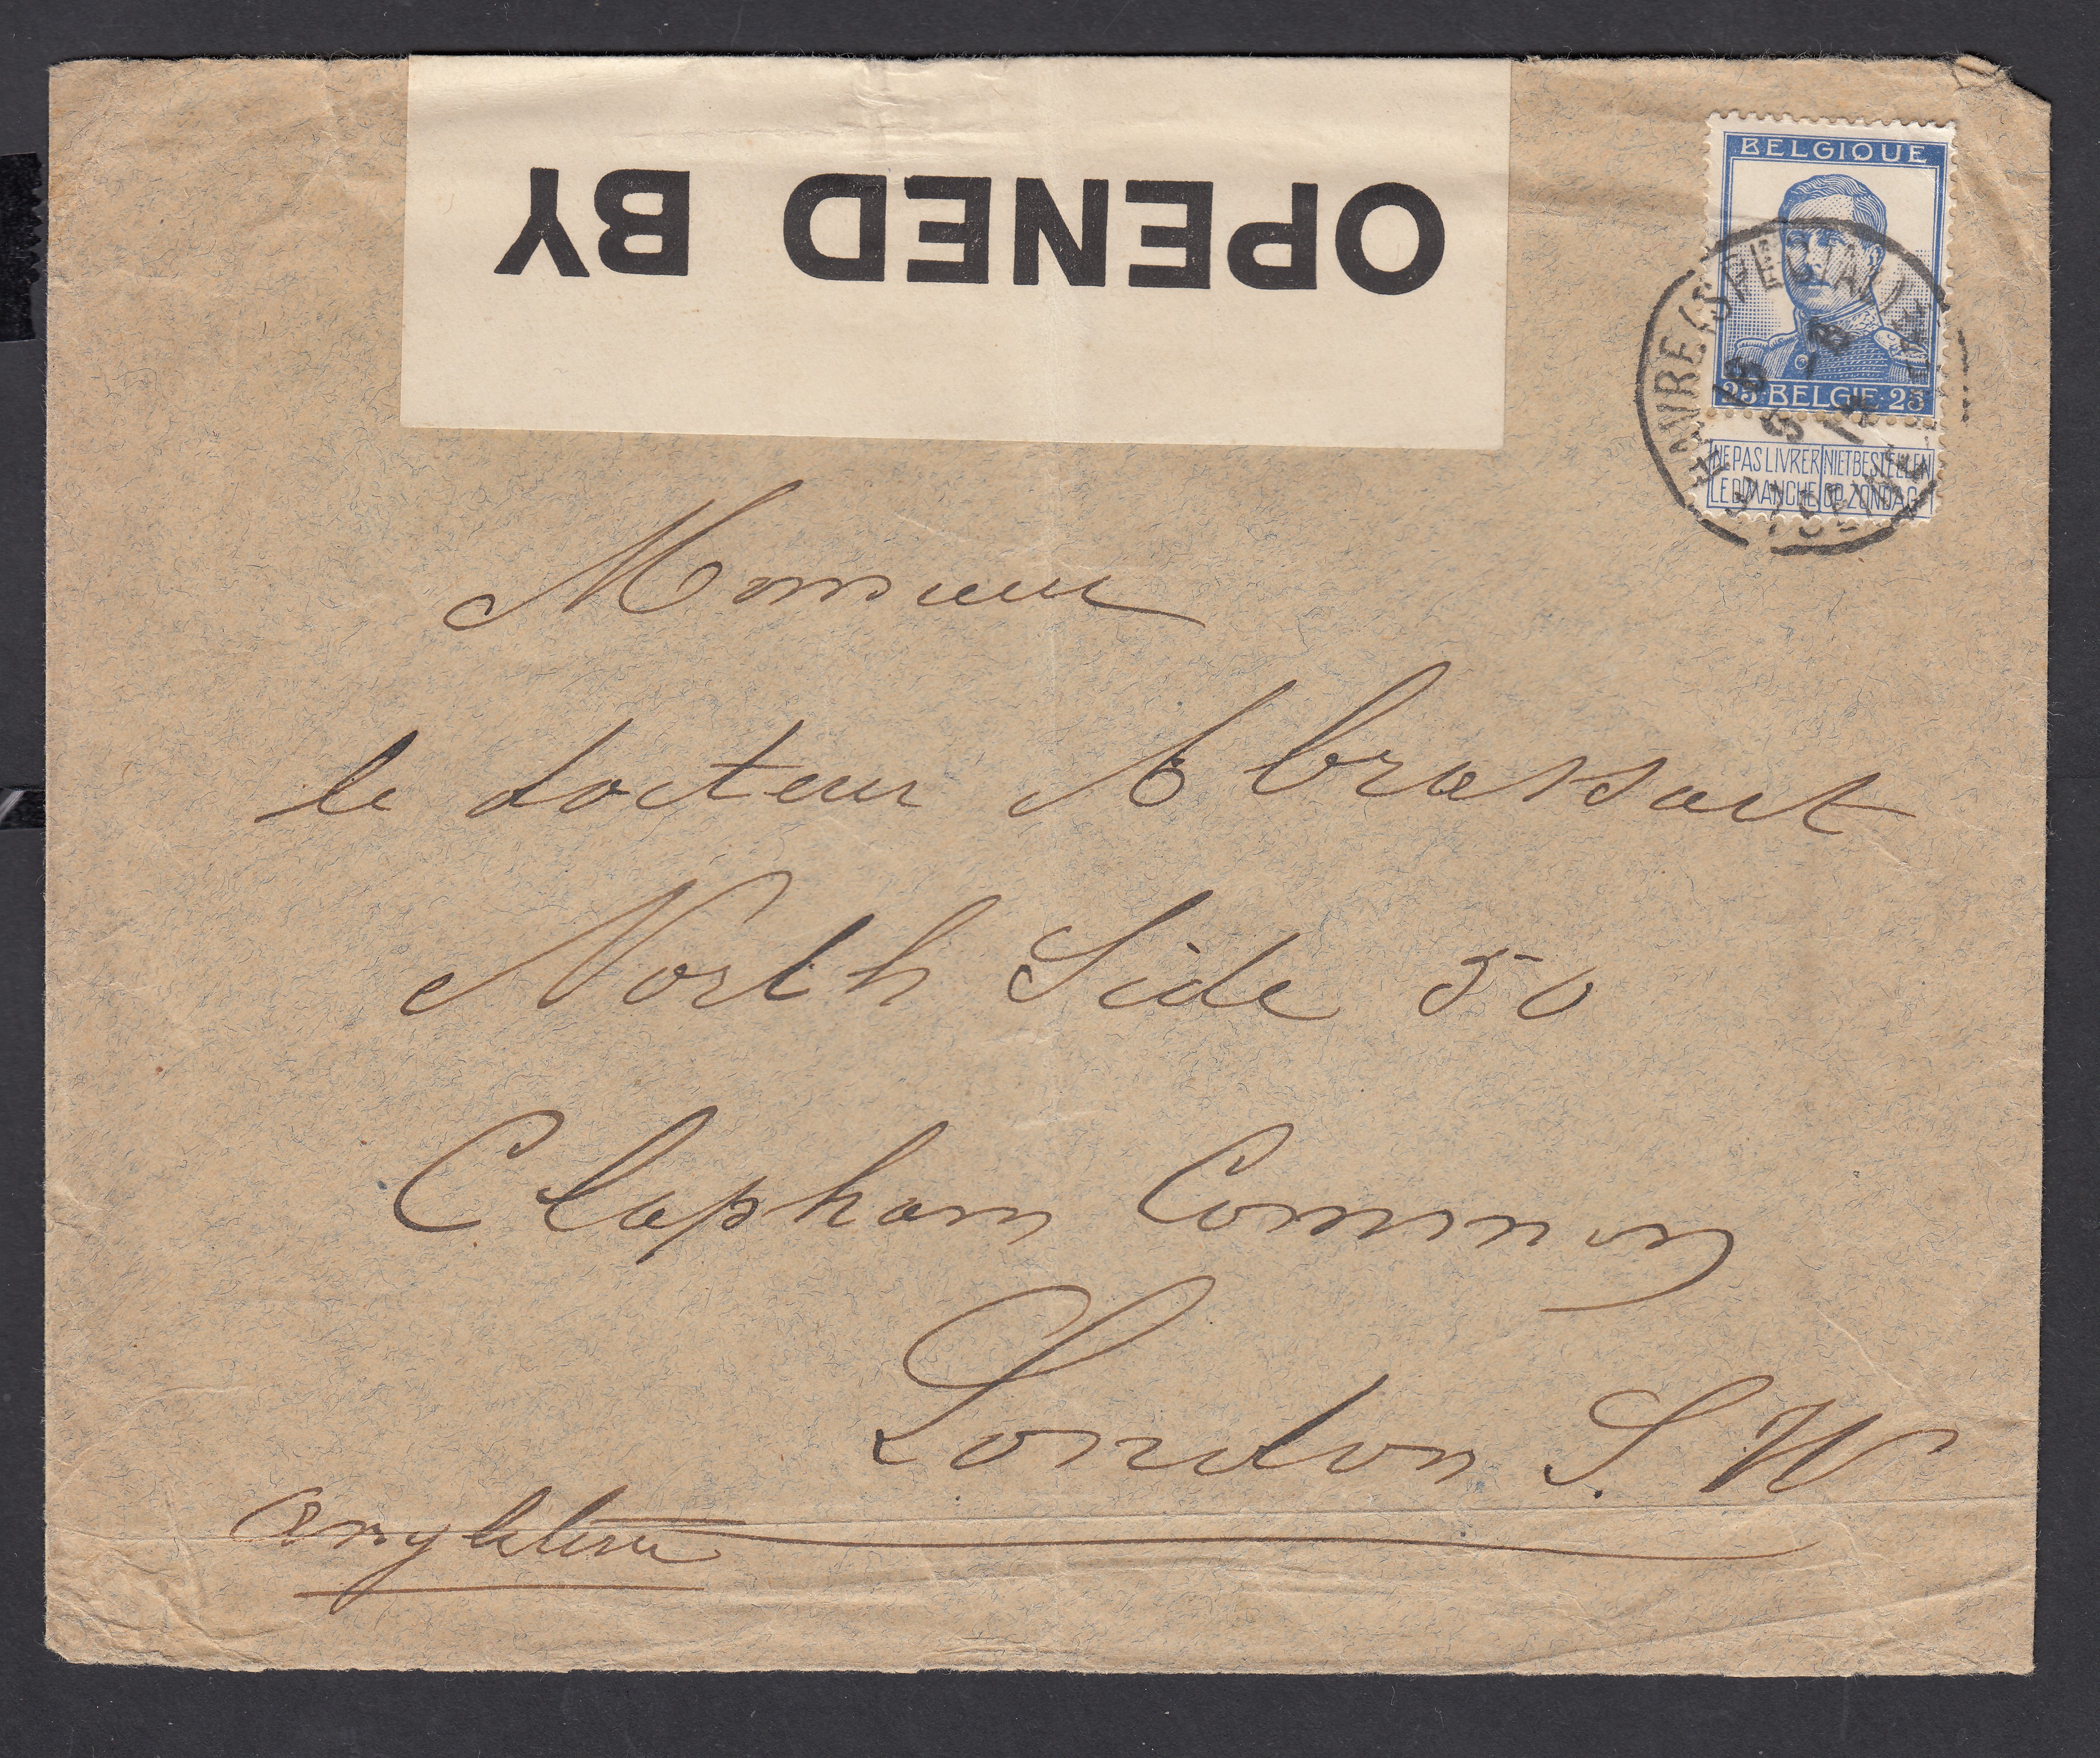 OPENED BY
BELGIQUE
25 BELGIE 25
NE PAS LIVRER NIET BESTELLEN
LE DIMANCHE OP ZONDAG
HAVRE (SPECIAL)
Monsieur
le docteur Abrassart
North Side 50
Clapham Common
London S. W
Angleterre